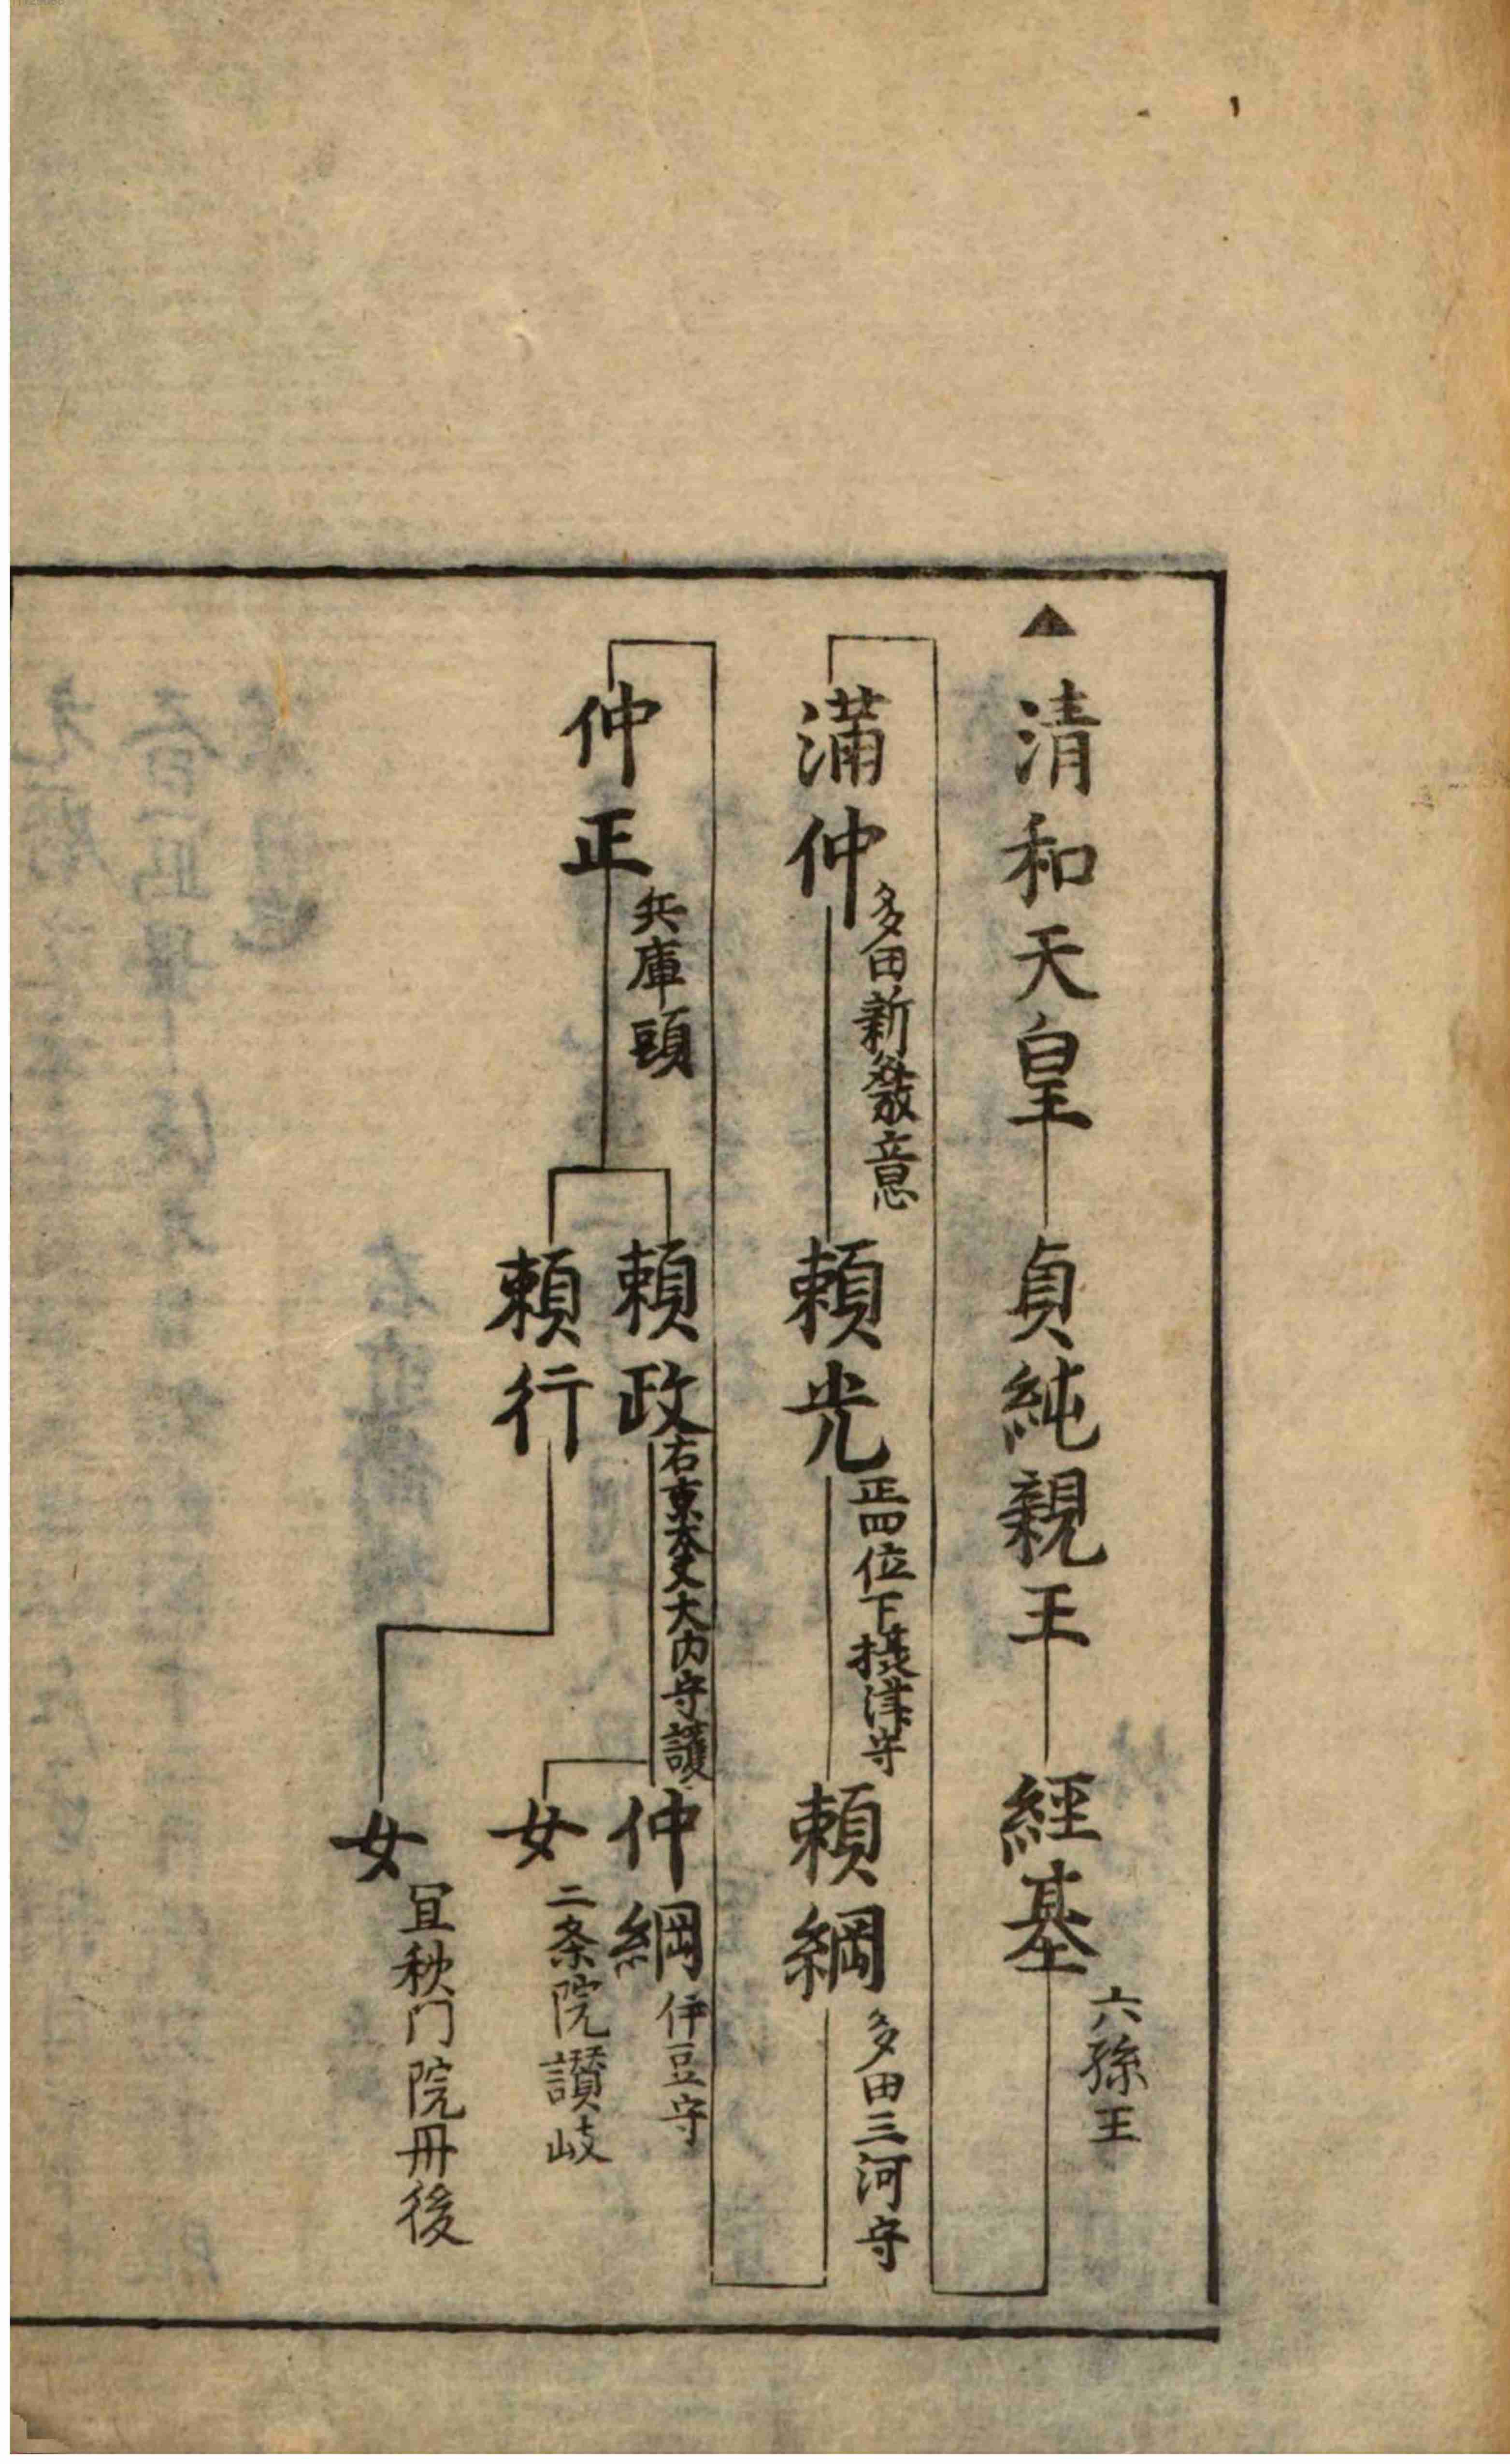 ▲清和天皇
貞純親王
經基
六孫王
滿仲
多田新發意
頼光
正四位下摂津守
頼綱
多田三河守
仲正
兵庫頭
頼政
右京大夫大内守護
仲綱
伊豆守
女
二条院讃岐
頼行
女
冝秋门院丹後